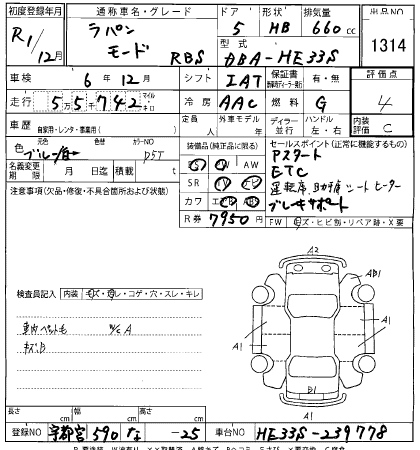 初度登録年月 通称車名・グレード ドア 形状 排気量 出品NO
R1/12月 ラパン モード RBS 5 HB 660 cc 1314
型式 DBA-HE33S
車検 6年12月 シフト IAT 保証書 有・無 評価点
走行 55千742 マイル キロ 冷房 AAC 燃料 G 4
車歴 自家用・レンタ・事業用( ) 外車モデル 年 ディーラー・並行 ハンドル 左・右 内装評価 C
色 元色 色替 カラーNO 装備品(純正品に限る) セールスポイント(正常に機能するもの)
ブルー
AW アスタート
名義変更期限 月 日 迄 積載 t SR TV ナビ ETC
注意事項(欠品・修復・不具合箇所および状態) カワ エアB ABS 運転席、助手席シートヒーター
R券 7950円 ブレーキサポート
FW キズ・ヒビ割・リペア跡・X要
検査員記入 内装 キズ・汚レ・コゲ・穴・スレ・キレ
A2
AB1
車内ペット毛 内C A
キズB
A1
A1
B1
A1
長さ cm 幅 cm 高さ cm
登録NO 宇都宮 590 な -25 車台NO HE33S-239778